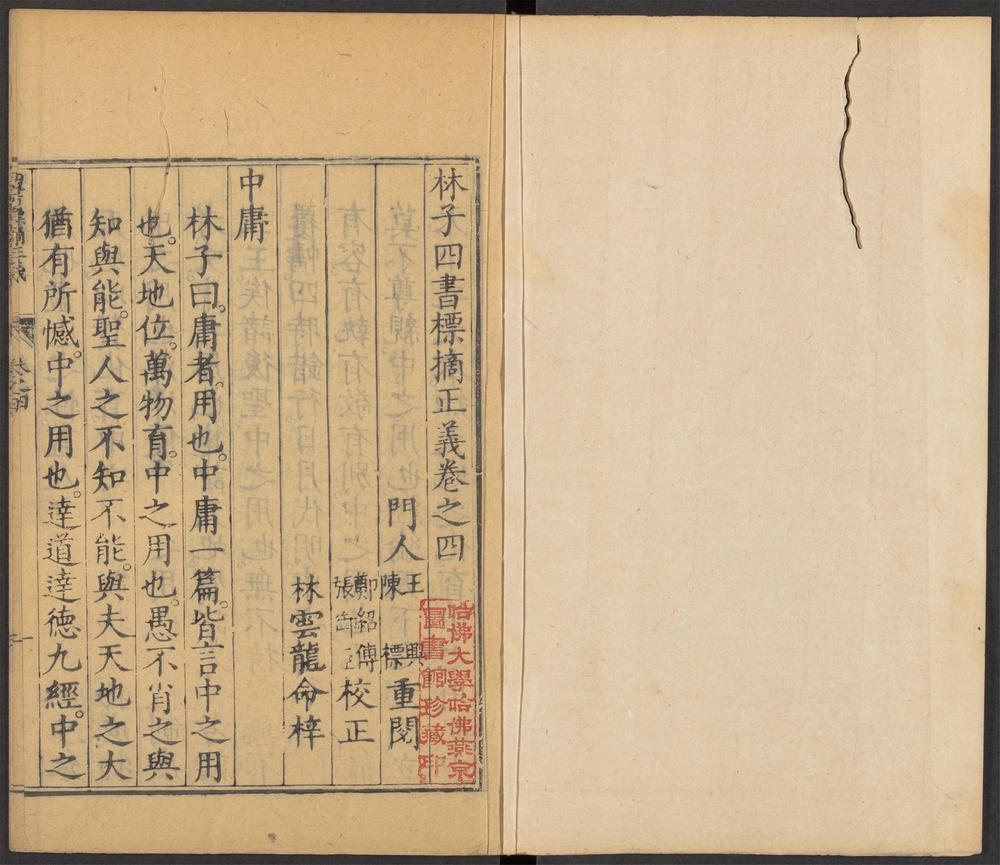 林子四書標摘正義卷之四
門人王興陳標重閱
鄭紹傳張校正
林雲龍命梓
中庸
林子曰。庸者。用也。中庸一篇。皆言中之用
也。天地位。萬物育。中之用也。愚不肖之與
知與能。聖人之不知不能。與夫天地之大
猶有所憾。中之用也。達道達德九經。中之
卷之四
一
哈佛大學哈佛燕京
圖書館珍藏印